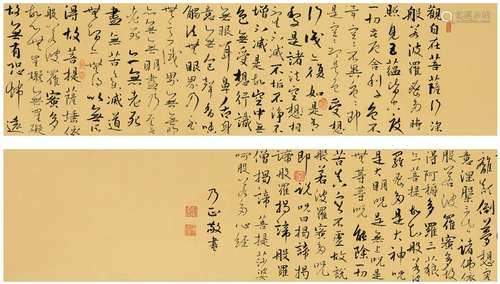 觀自在菩薩行深
般若波羅蜜多時
照見五蘊皆空度
一切苦厄舍利子色不
異空空不異色色即
是空空即是色受想
行識亦復如是舍
利子是諸法空相
不生不滅不垢不淨不
增不減是故空中無
色無受想行識
無眼耳鼻舌身
意無色聲香味
觸法無眼界乃至
無意識界無無明亦
無無明盡乃至無
老死亦無老死
盡無苦集滅道
無智亦無得以無所
得故菩提薩埵依
般若波羅蜜多
故心無罣礙無罣礙
故無有恐怖遠
離顛倒夢想究
竟涅槃三世諸佛依
般若波羅蜜多故
得阿耨多羅三藐
三菩提故知般若波
羅蜜多是大神咒
是大明咒是無上咒是
無等等咒能除一切
苦真實不虛故說
般若波羅蜜多咒
即說咒曰揭諦揭
諦般羅揭諦般羅
僧揭諦菩提莎婆
訶般若多心經
乃正敬書